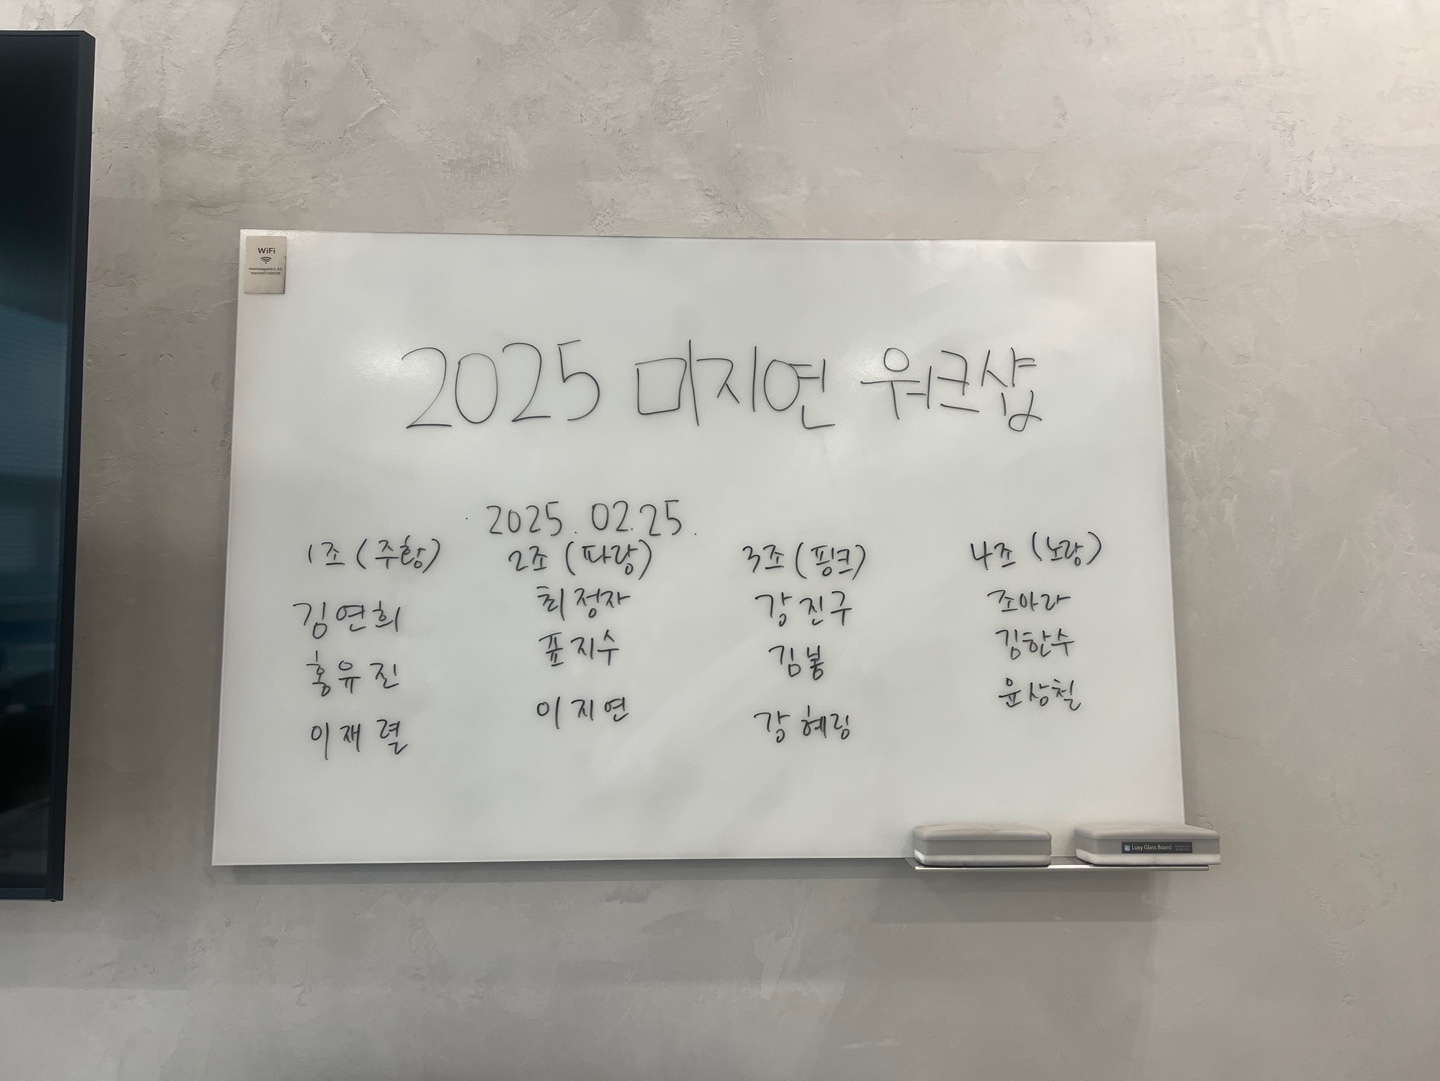 WiFi
2025 미지연 워크샵
2025.02.25.
1조 (주황)
김연희
홍유진
이재렬
2조 (파랑)
최정자
표지수
이지연
3조 (핑크)
강진구
김봉
강혜링
4조 (노랑)
조아라
김한수
윤상철
Luxy Glass Board